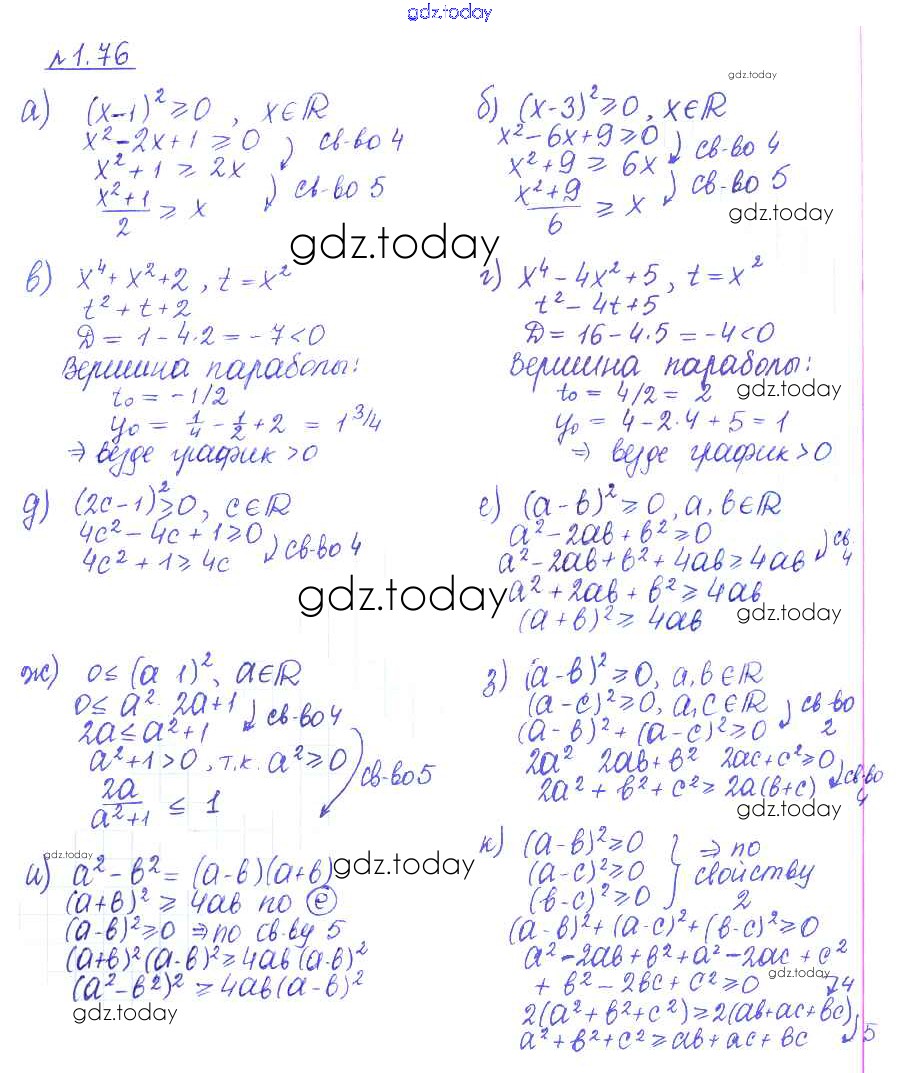 gdz.today
№1.76
gdz.today
а) (x-1)² ≥ 0 , x∈ℝ
x² - 2x + 1 ≥ 0
св-во 4
x² + 1 ≥ 2x
св-во 5
(x²+1)/2 ≥ x
б) (x-3)² ≥ 0, x∈ℝ
x² - 6x + 9 ≥ 0
св-во 4
x² + 9 ≥ 6x
св-во 5
(x²+9)/6 ≥ x
gdz.today
gdz.today
в) x⁴ + x² + 2 , t = x²
t² + t + 2
D = 1 - 4·2 = -7 < 0
Вершина параболы:
t₀ = -1/2
y₀ = 1/4 - 1/2 + 2 = 1 3/4
⇒ везде график > 0
г) x⁴ - 4x² + 5 , t = x²
t² - 4t + 5
D = 16 - 4·5 = -4 < 0
Вершина параболы:
t₀ = 4/2 = 2
gdz.today
y₀ = 4 - 2·4 + 5 = 1
⇒ везде график > 0
д) (2c-1)² ≥ 0, c∈ℝ
4c² - 4c + 1 ≥ 0
св-во 4
4c² + 1 ≥ 4c
gdz.today
е) (a-b)² ≥ 0, a,b∈ℝ
a² - 2ab + b² ≥ 0
св. 4
a² - 2ab + b² + 4ab ≥ 4ab
a² + 2ab + b² ≥ 4ab
(a+b)² ≥ 4ab
gdz.today
ж) 0 ≤ (a 1)², a∈ℝ
0 ≤ a² 2a+1
св-во 4
2a ≤ a²+1
a²+1 > 0 , т.к. a² ≥ 0
св-во 5
2a/(a²+1) ≤ 1
з) (a-b)² ≥ 0, a,b∈ℝ
(a-c)² ≥ 0, a,c∈ℝ
св-во 2
(a-b)² + (a-c)² ≥ 0
2a² 2ab + b² 2ac + c² ≥ 0
св-во 4
2a² + b² + c² ≥ 2a(b+c)
gdz.today
gdz.today
и) a² - b² = (a-b)(a+b)
gdz.today
(a+b)² ≥ 4ab по е
(a-b)² ≥ 0 ⇒ по св-ву 5
(a+b)²(a-b)² ≥ 4ab(a-b)²
(a²-b²)² ≥ 4ab(a-b)²
gdz.today
к) (a-b)² ≥ 0
(a-c)² ≥ 0
(b-c)² ≥ 0
} ⇒ по
свойству
2
(a-b)² + (a-c)² + (b-c)² ≥ 0
a² - 2ab + b² + a² - 2ac + c²
gdz.today
+ b² - 2bc + c² ≥ 0
4
2(a²+b²+c²) ≥ 2(ab+ac+bc)
5
a² + b² + c² ≥ ab + ac + bc